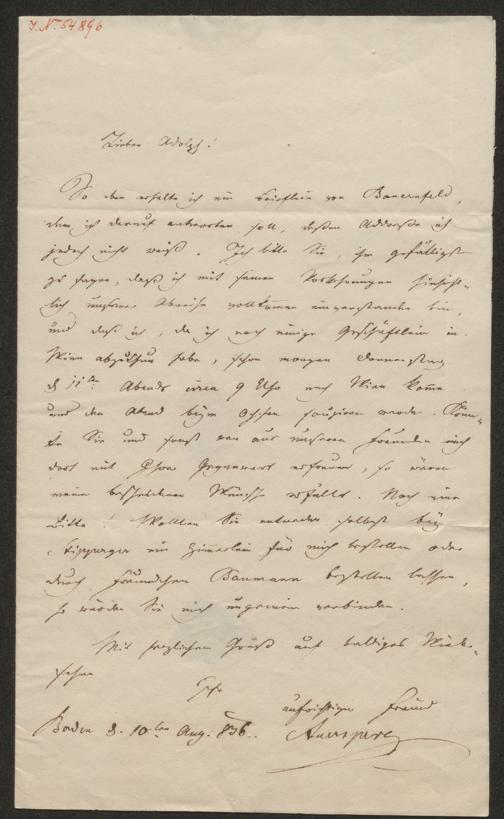 J.N. 54896
Lieber Adolph!
So eben erhalte ich ein Brieflein von Bauernfeld,
dem ich darauf antworten soll, dessen Addresse ich
jedoch nicht weiß. Ich bitte Sie, ihm gefälligst
zu sagen, daß ich mit seinen Vorkehrungen hinsicht-
lich unserer Abreise vollkommen einverstanden bin,
und daß ich, da ich noch einige Geschäftlein in
Wien abzuthun habe, schon morgen Donnerstag
d 11ten Abends circa 9 Uhr nach Wien komme
und den Abend beym Ochsen soupiren werde. Könn-
ten Sie und sonst wer aus unseren Freunden mich
dort mit Ihrer Gegenwart erfreuen, so wären
meine bescheidenen Wünsche erfüllt. Noch eine
Bitte! Wollten Sie entweder selbst bey
ein Zimmerlein für mich bestellen oder
durch Freundchen Baumann bestellen lassen,
so würden Sie mich ungemein verbinden.
Mit herzlichem Gruß auf baldiges Wieder-
sehen
Ihr
aufrichtiger Freund
Baden d. 10ten Aug. 836. Auersperg